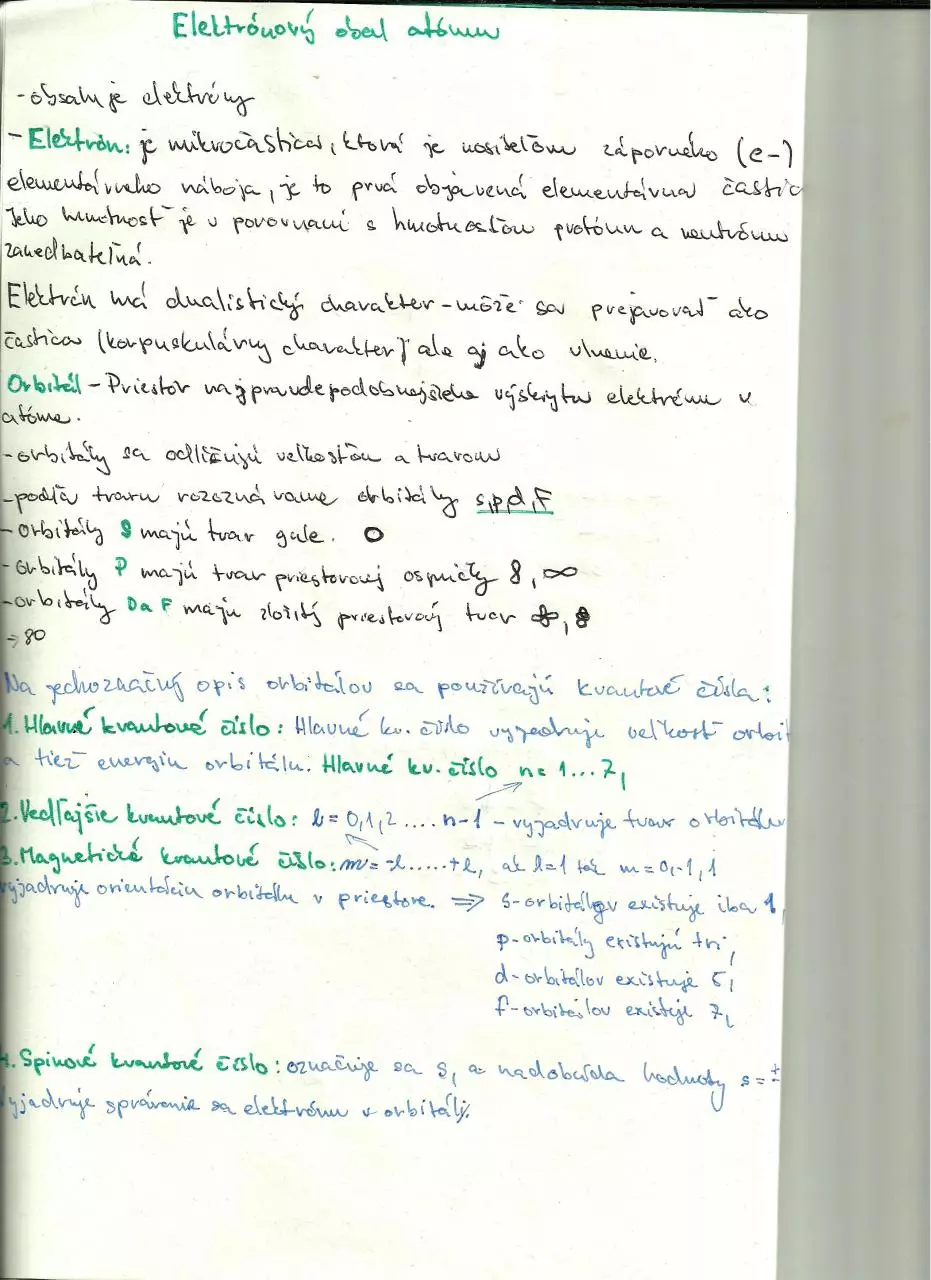 Elektrónový obal atómu
- obsahuje elektróny
- Elektrón: je mikročastica, ktorá je nositeľom záporného (e-)
elementárneho náboja, je to prvá objavená elementárna častic
Jeho hmotnosť je v porovnaní s hmotnosťou protónu a neutrónu
zanedbateľná.
Elektrón má dualistický charakter - môže sa prejavovať ako
častica (korpuskulárny charakter) ale aj ako vlnenie.
Orbitál - Priestor najpravdepodobnejšieho výskytu elektrónu v
atóme.
- orbitály sa odlišujú veľkosťou a tvarom
- podľa tvaru rozoznávame orbitály s,p,d,F
- orbitály S majú tvar gule. O
- orbitály P majú tvar priestorovej osmičky 8, ∞
- orbitály D a F majú zložitý priestorový tvar
→ 80
Na jednoznačný opis orbitálov sa používajú kvantové čísla:
1. Hlavné kvantové číslo: Hlavné kv. číslo vyjadruje veľkosť orbit
a tiež energiu orbitálu. Hlavné kv. číslo n = 1...7,
2. Vedľajšie kvantové číslo: l = 0,1,2 .... n-1 - vyjadruje tvar orbitálu
3. Magnetické kvantové číslo: m = -l.....+l, ak l=1 tak m = 0,-1,1
vyjadruje orientáciu orbitálu v priestore. ⇒ s-orbitálov existuje iba 1,
p-orbitály existujú tri,
d-orbitálov existuje 5,
f-orbitálov existuje 7,
4. Spinové kvantové číslo: označuje sa s, a nadobúda hodnoty s = ±
vyjadruje správanie sa elektrónu v orbitáli.